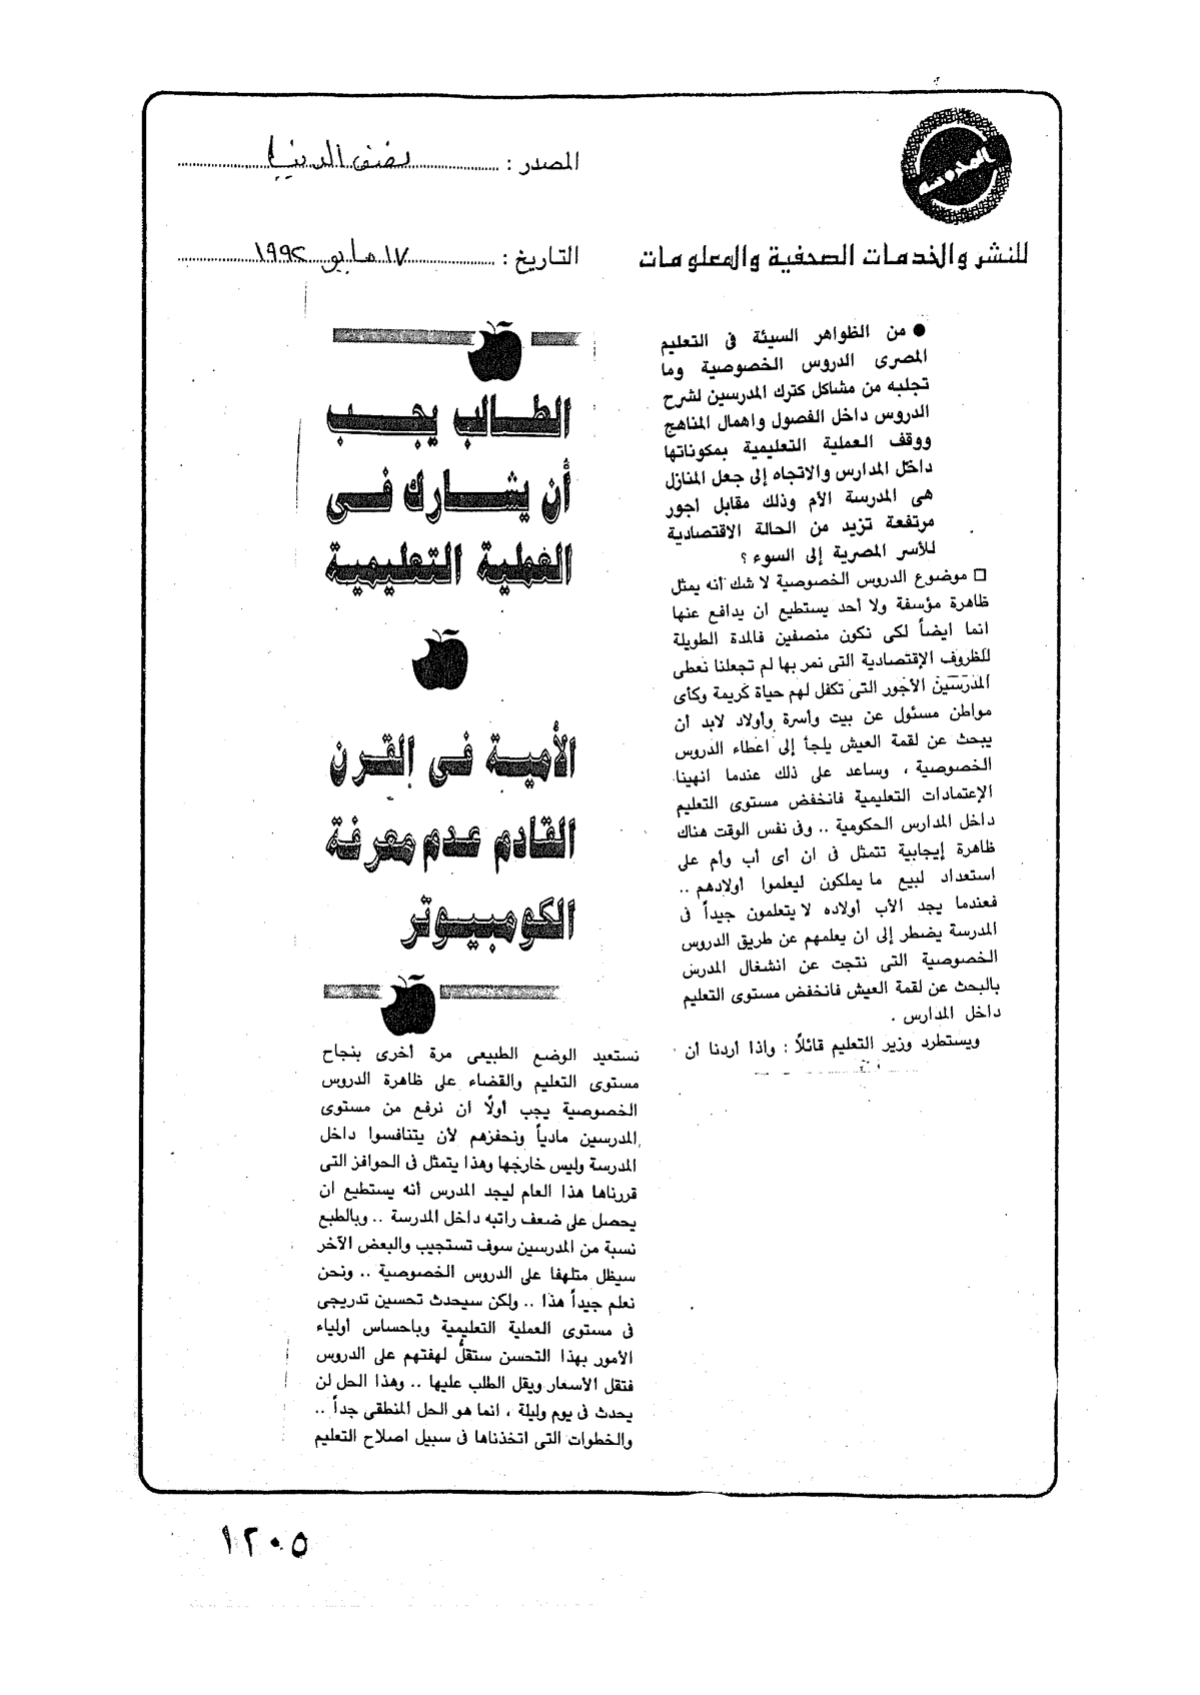 المحروسة
للنشر والخدمات الصحفية والمعلومات
المصدر : نصف الدنيا
التاريخ : ١٧ مايو ١٩٩٢
● من الظواهر السيئة فى التعليم
المصرى الدروس الخصوصية وما
تجلبه من مشاكل كترك المدرسين لشرح
الدروس داخل الفصول واهمال المناهج
ووقف العملية التعليمية بمكوناتها
داخل المدارس والاتجاه إلى جعل المنازل
هى المدرسة الأم وذلك مقابل أجور
مرتفعة تزيد من الحالة الاقتصادية
للأسر المصرية إلى السوء ؟
□ موضوع الدروس الخصوصية لا شك أنه يمثل
ظاهرة مؤسفة ولا أحد يستطيع ان يدافع عنها
انما ايضاً لكى نكون منصفين فالمدة الطويلة
للظروف الإقتصادية التى نمر بها لم تجعلنا نعطى
المدرسين الأجور التى تكفل لهم حياة كريمة وكأى
مواطن مسئول عن بيت وأسرة وأولاد لابد أن
يبحث عن لقمة العيش يلجأ إلى اعطاء الدروس
الخصوصية ، وساعد على ذلك عندما انهينا
الإعتمادات التعليمية فانخفض مستوى التعليم
داخل المدارس الحكومية .. وفى نفس الوقت هناك
ظاهرة إيجابية تتمثل فى ان أى أب وأم على
استعداد لبيع ما يملكون ليعلموا أولادهم ..
فعندما يجد الأب أولاده لا يتعلمون جيداً فى
المدرسة يضطر إلى ان يعلمهم عن طريق الدروس
الخصوصية التى نتجت عن انشغال المدرس
بالبحث عن لقمة العيش فانخفض مستوى التعليم
داخل المدارس .
ويستطرد وزير التعليم قائلاً : واذا أردنا أن
الطالب يجب
أن يشارك فى
العملية التعليمية
الأمية فى القرن
القادم عدم معرفة
الكومبيوتر
نستعيد الوضع الطبيعى مرة أخرى بنجاح
مستوى التعليم والقضاء على ظاهرة الدروس
الخصوصية يجب أولًا ان نرفع من مستوى
المدرسين مادياً ونحفزهم لأن يتنافسوا داخل
المدرسة وليس خارجها وهذا يتمثل فى الحوافز التى
قررناها هذا العام ليجد المدرس أنه يستطيع ان
يحصل على ضعف راتبه داخل المدرسة .. وبالطبع
نسبة من المدرسين سوف تستجيب والبعض الآخر
سيظل متلهفا على الدروس الخصوصية .. ونحن
نعلم جيداً هذا .. ولكن سيحدث تحسين تدريجى
فى مستوى العملية التعليمية وباحساس أولياء
الأمور بهذا التحسن ستقل لهفتهم على الدروس
فتقل الأسعار ويقل الطلب عليها .. وهذا الحل لن
يحدث فى يوم وليلة ، انما هو الحل المنطقى جداً ..
والخطوات التى اتخذناها فى سبيل اصلاح التعليم
١٢٠٥